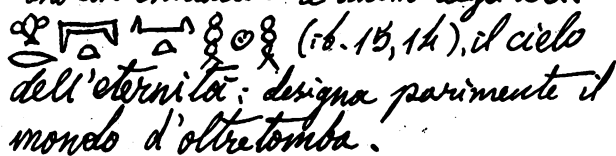 𓁷𓂋𓇯𓏏𓈖𓏏𓎛𓇳𓎛 (ib. 15, 14), il cielo
dell'eternità; designa parimente il
mondo d'oltretomba.